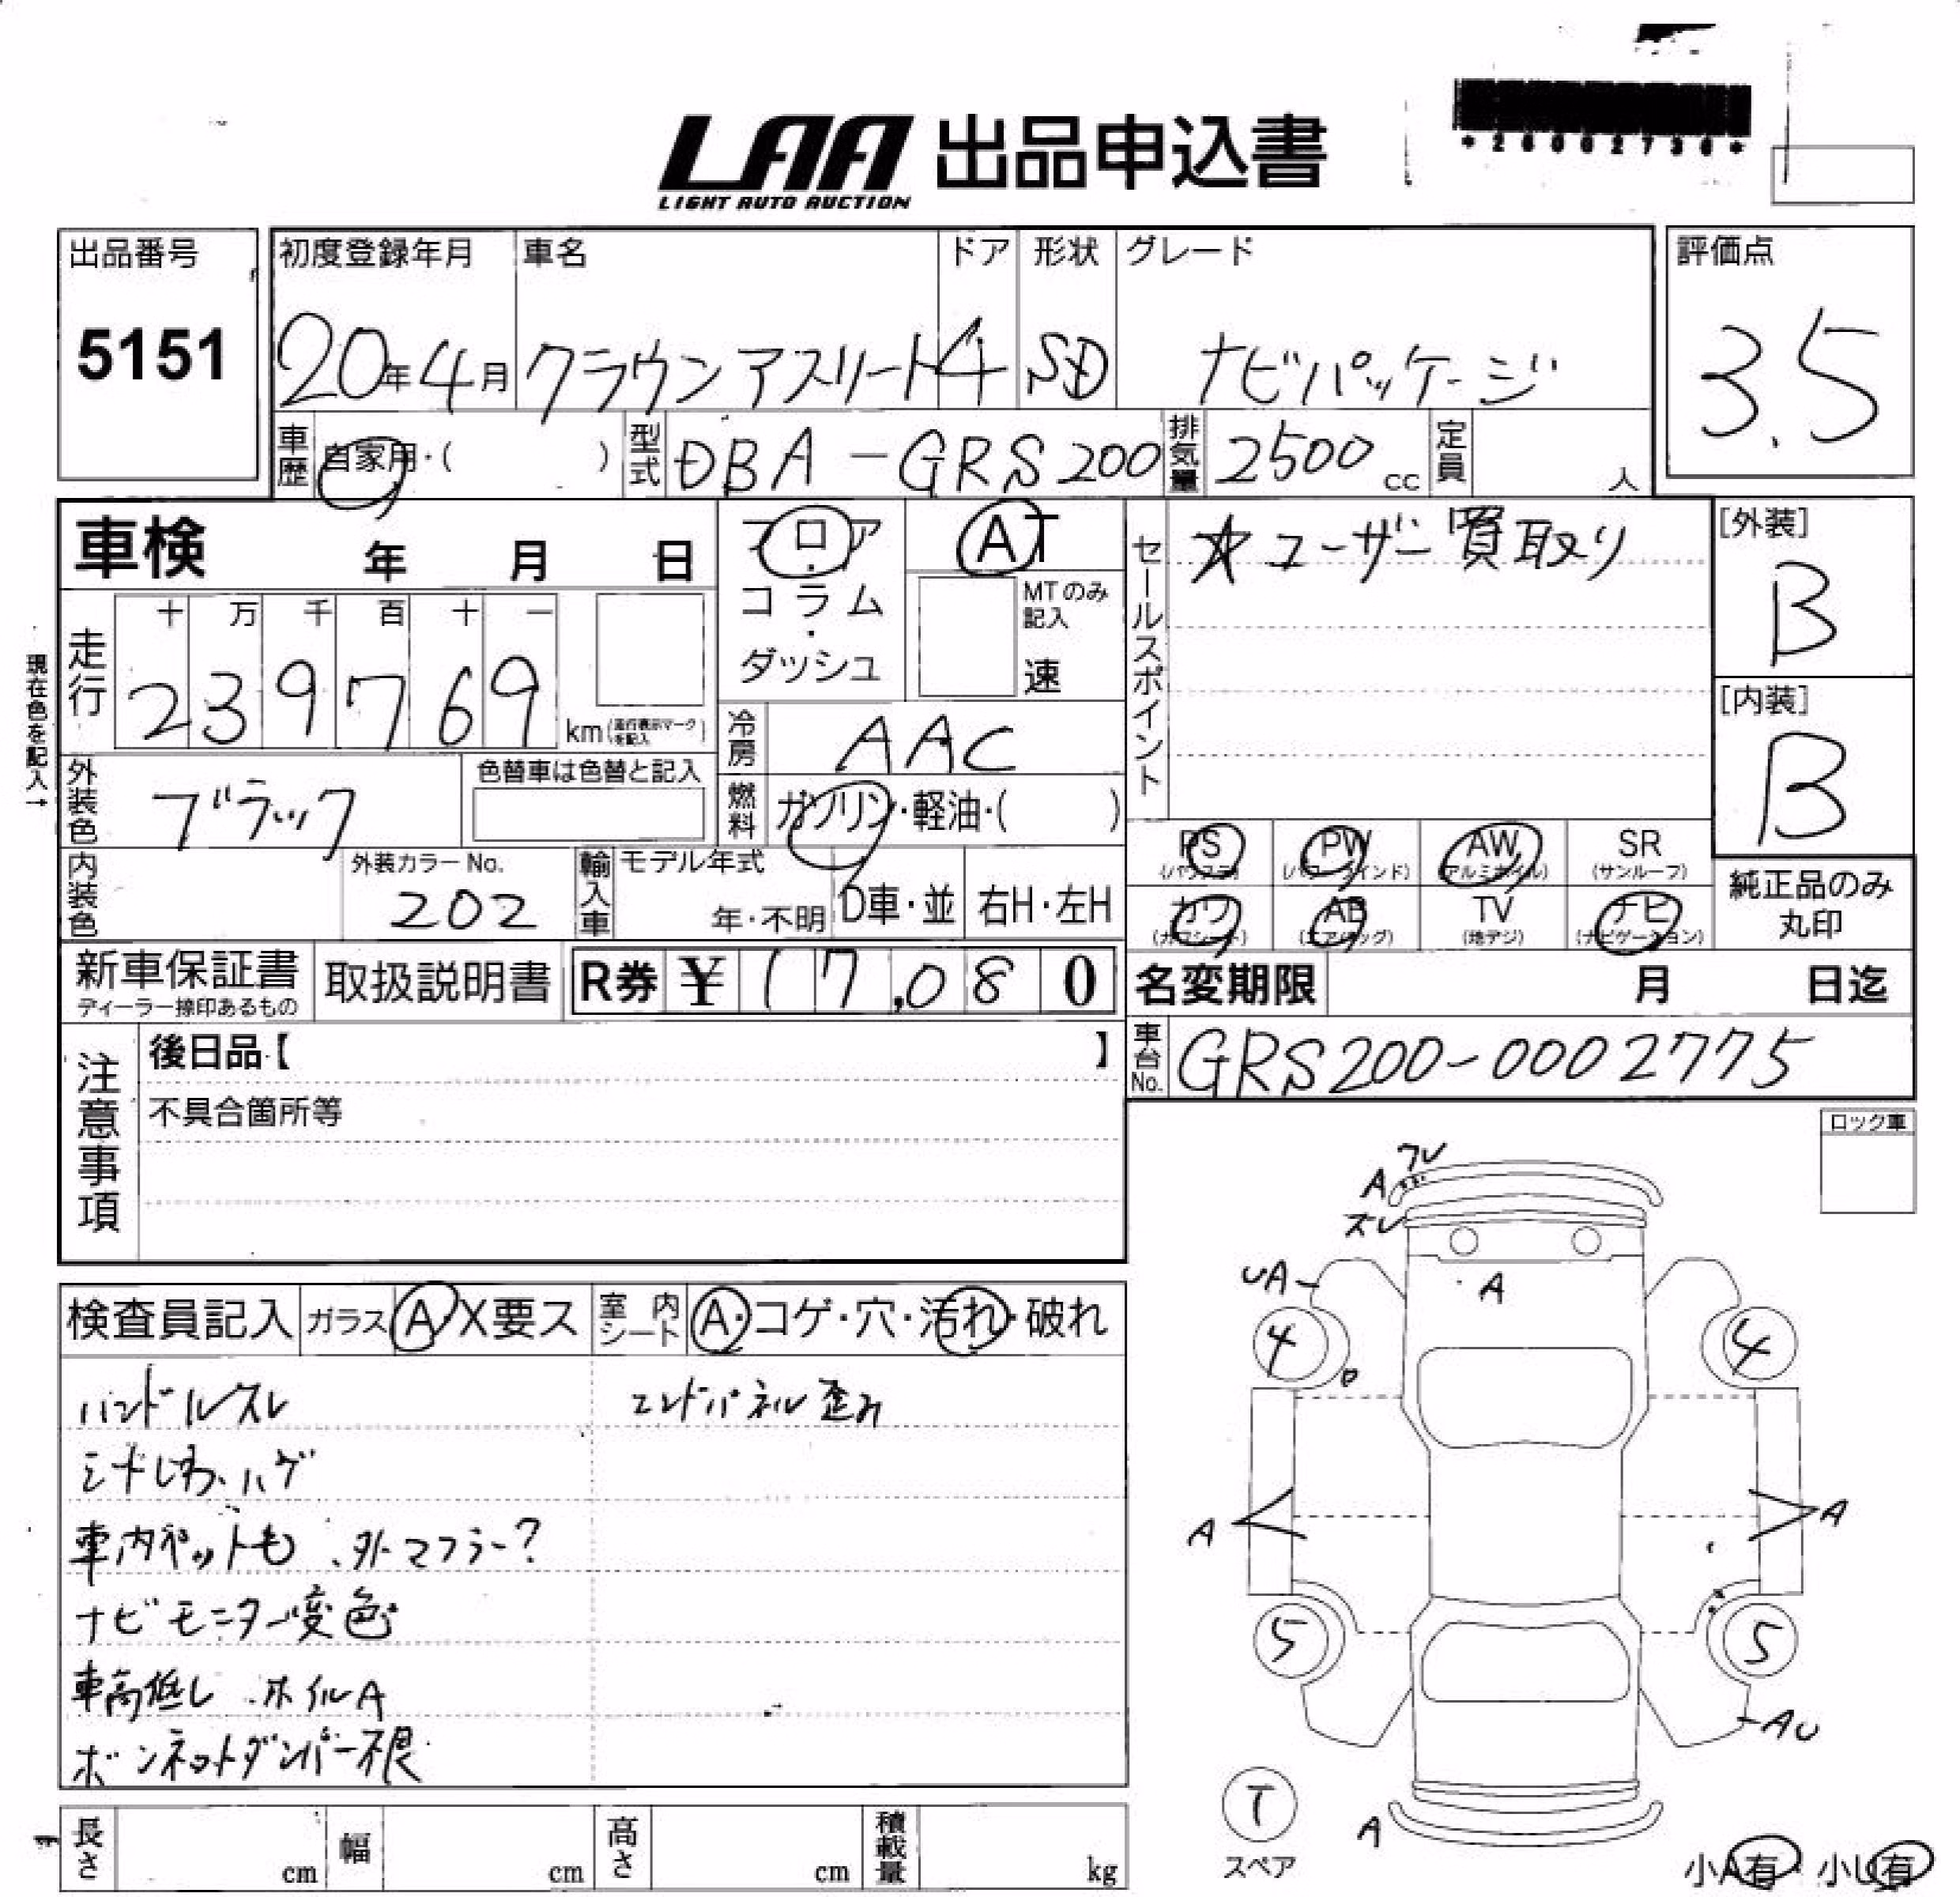 *26002730*
LAA 出品申込書
LIGHT AUTO AUCTION
出品番号
5151
初度登録年月
20年4月
車名
クラウンアスリート
ドア
4
形状
SD
グレード
ナビパッケージ
評価点
3.5
車歴 自家用・( )
型式 DBA-GRS200
排気量 2500cc
定員 人
車検 年 月 日
フロア・コラム・ダッシュ
AT
MTのみ記入
速
セールスポイント
☆ユーザー買取り
[外装]
B
[内装]
B
現在色を記入→
走行
十 万 千 百 十 一
2 3 9 7 6 9 km(走行表示マークを記入)
冷房 AAC
外装色 ブラック
色替車は色替と記入
燃料 ガソリン・軽油・( )
内装色
外装カラーNo.
202
輸入車 モデル年式
年・不明
D車・並
右H・左H
PS PW AW SR
(パワステ) (パワーウインド) (アルミホイル) (サンルーフ)
カワ AB TV ナビ
(カワシート) (エアバッグ) (地デジ) (ナビゲーション)
純正品のみ
丸印
新車保証書
ディーラー捺印あるもの
取扱説明書
R券 ¥ 17,080
名変期限 月 日迄
車台No. GRS200-0002775
注意事項
後日品【 】
不具合箇所等
ロック車
検査員記入
ガラス A・X要ス
室内シート A・コゲ・穴・汚れ・破れ
ハンドルスレ
エンドパネル歪み
シートしわ、ハゲ
車内ペットも、外マフラー?
ナビモニター変色
車高低し、ホイルA
ボンネットダンパー不良
ワレ
A
スレ
UA
A
4
4
A
A
5
5
AU
T
スペア
A
小A有・小U有
長さ cm
幅 cm
高さ cm
積載量 kg